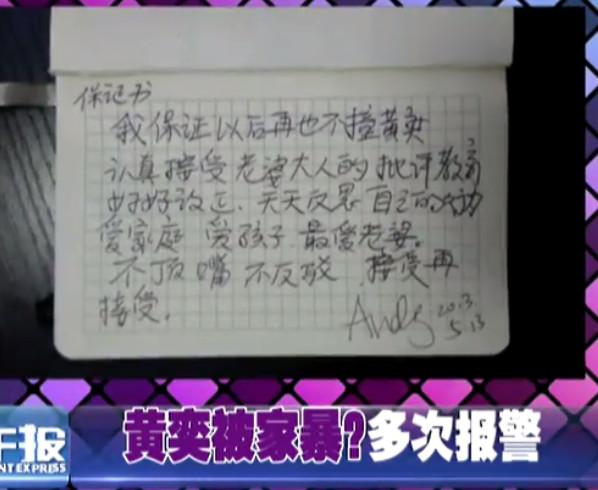 保证书
我保证以后再也不撞黄奕
认真接受老婆大人的批评教育
好好改正、天天反思自己的
爱家庭 爱孩子 最爱老婆。
不顶嘴 不反驳 接受再
接受。
Andy 2013.
5.13
午报
NT EXPRESS
黄奕被家暴?多次报警